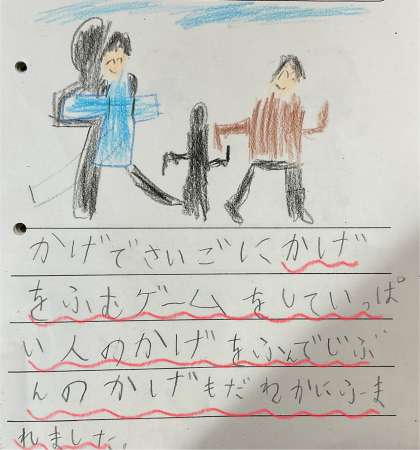 かげでさいごにかげ
をふむゲームをしていっぱ
い人のかげをふんでじぶ
んのかげもだれかにふま
れました。